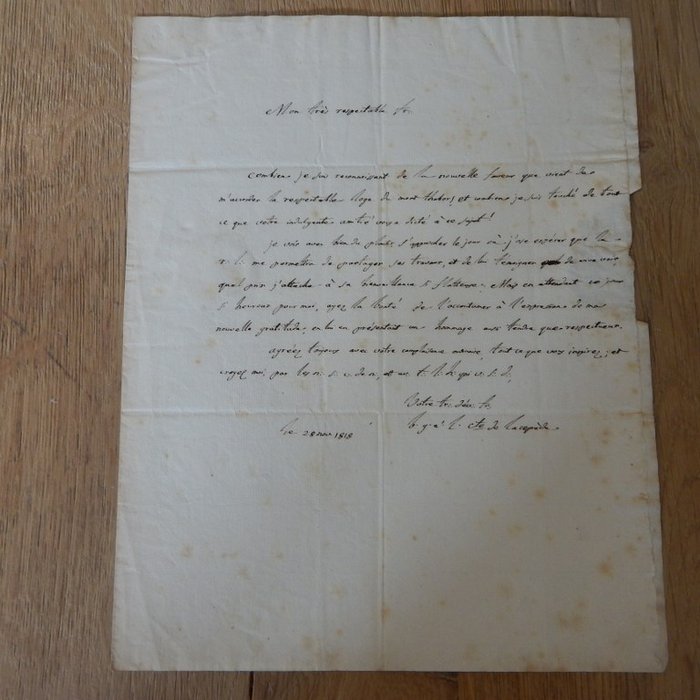 Mon très respectable fr.
Combien je suis reconnaissant de la nouvelle faveur que vient de
m'accorder la respectable loge du mont thabor, et combien je suis touché de tout
ce que votre indulgente amitié vous a dicté à ce sujet!
je vois avec bien du plaisir s'approcher le jour où j'ose espérer que la
r. l. me permettra de partager ses travaux, et de lui témoigner de vive voix
quel prix j'attache à sa bienveillance si flatteuse. Mais en attendant ce jour
si heureux pour moi, ayez la bonté de l'expression de ma
nouvelle gratitude, en lui en présentant un hommage aussi tendre que respectueux.
agréez toujours avec votre complaisance tout ce que vous inspirez, et
croyez moi, par les n.
Votre tr. dév. fr.
le cte de lacepède
Ce 28 nov. 1818